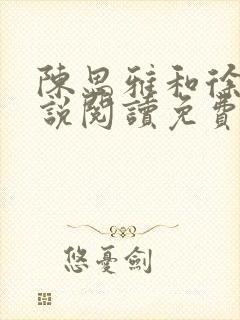 陳思雅和徐
說閱讀免費
悠憂劍